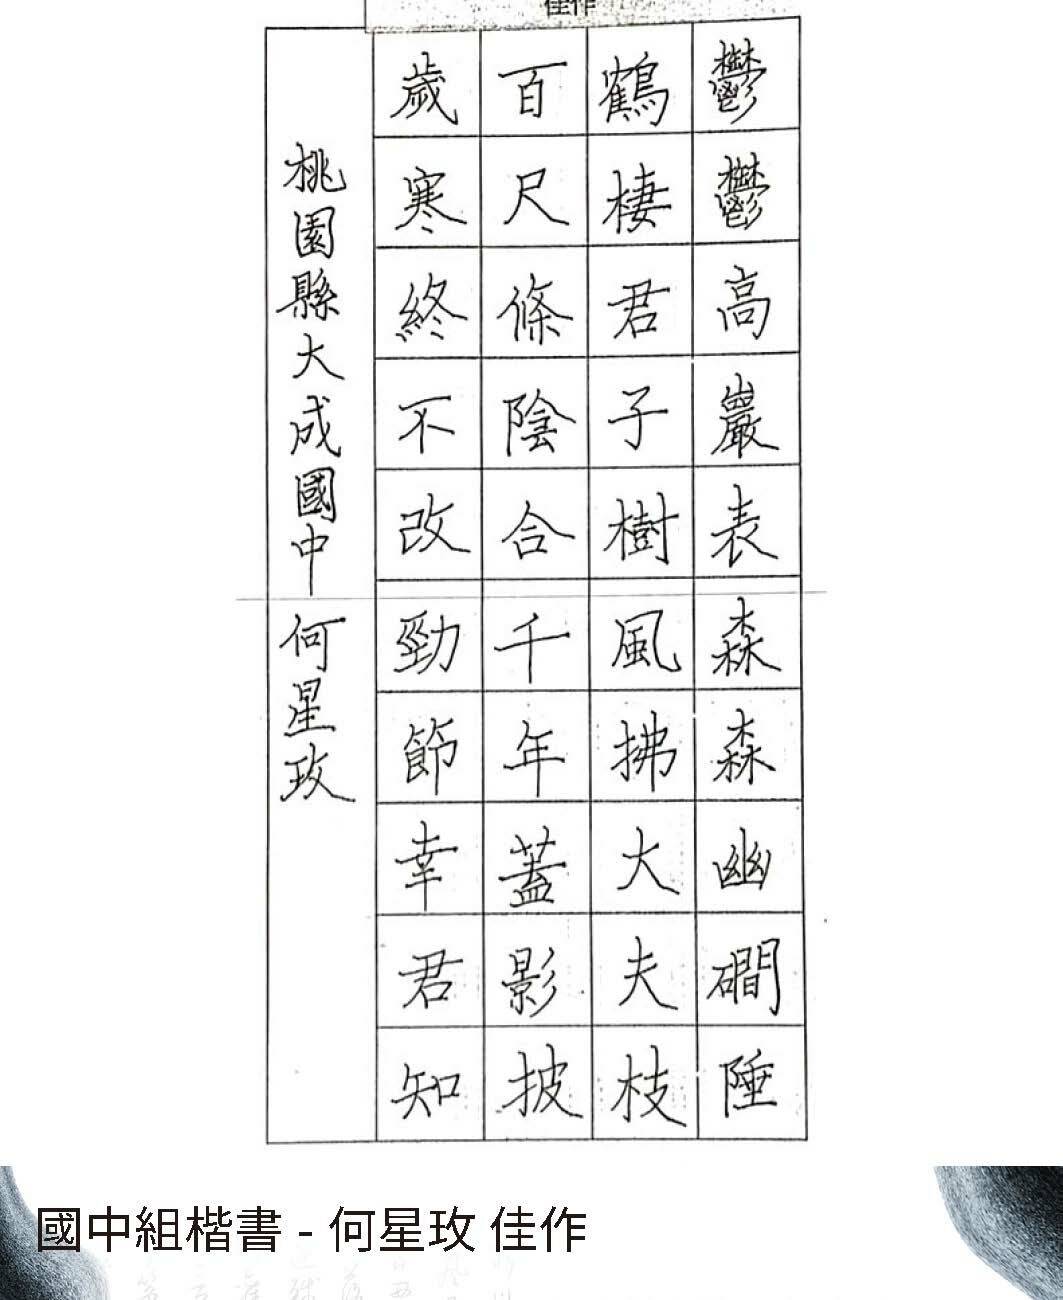 佳作
鬱鬱高巖表森森幽磵陲
鶴棲君子樹風拂大夫枝
百尺條陰合千年蓋影披
歲寒終不改勁節幸君知
桃園縣大成國中 何星玫
國中組楷書 - 何星玫 佳作